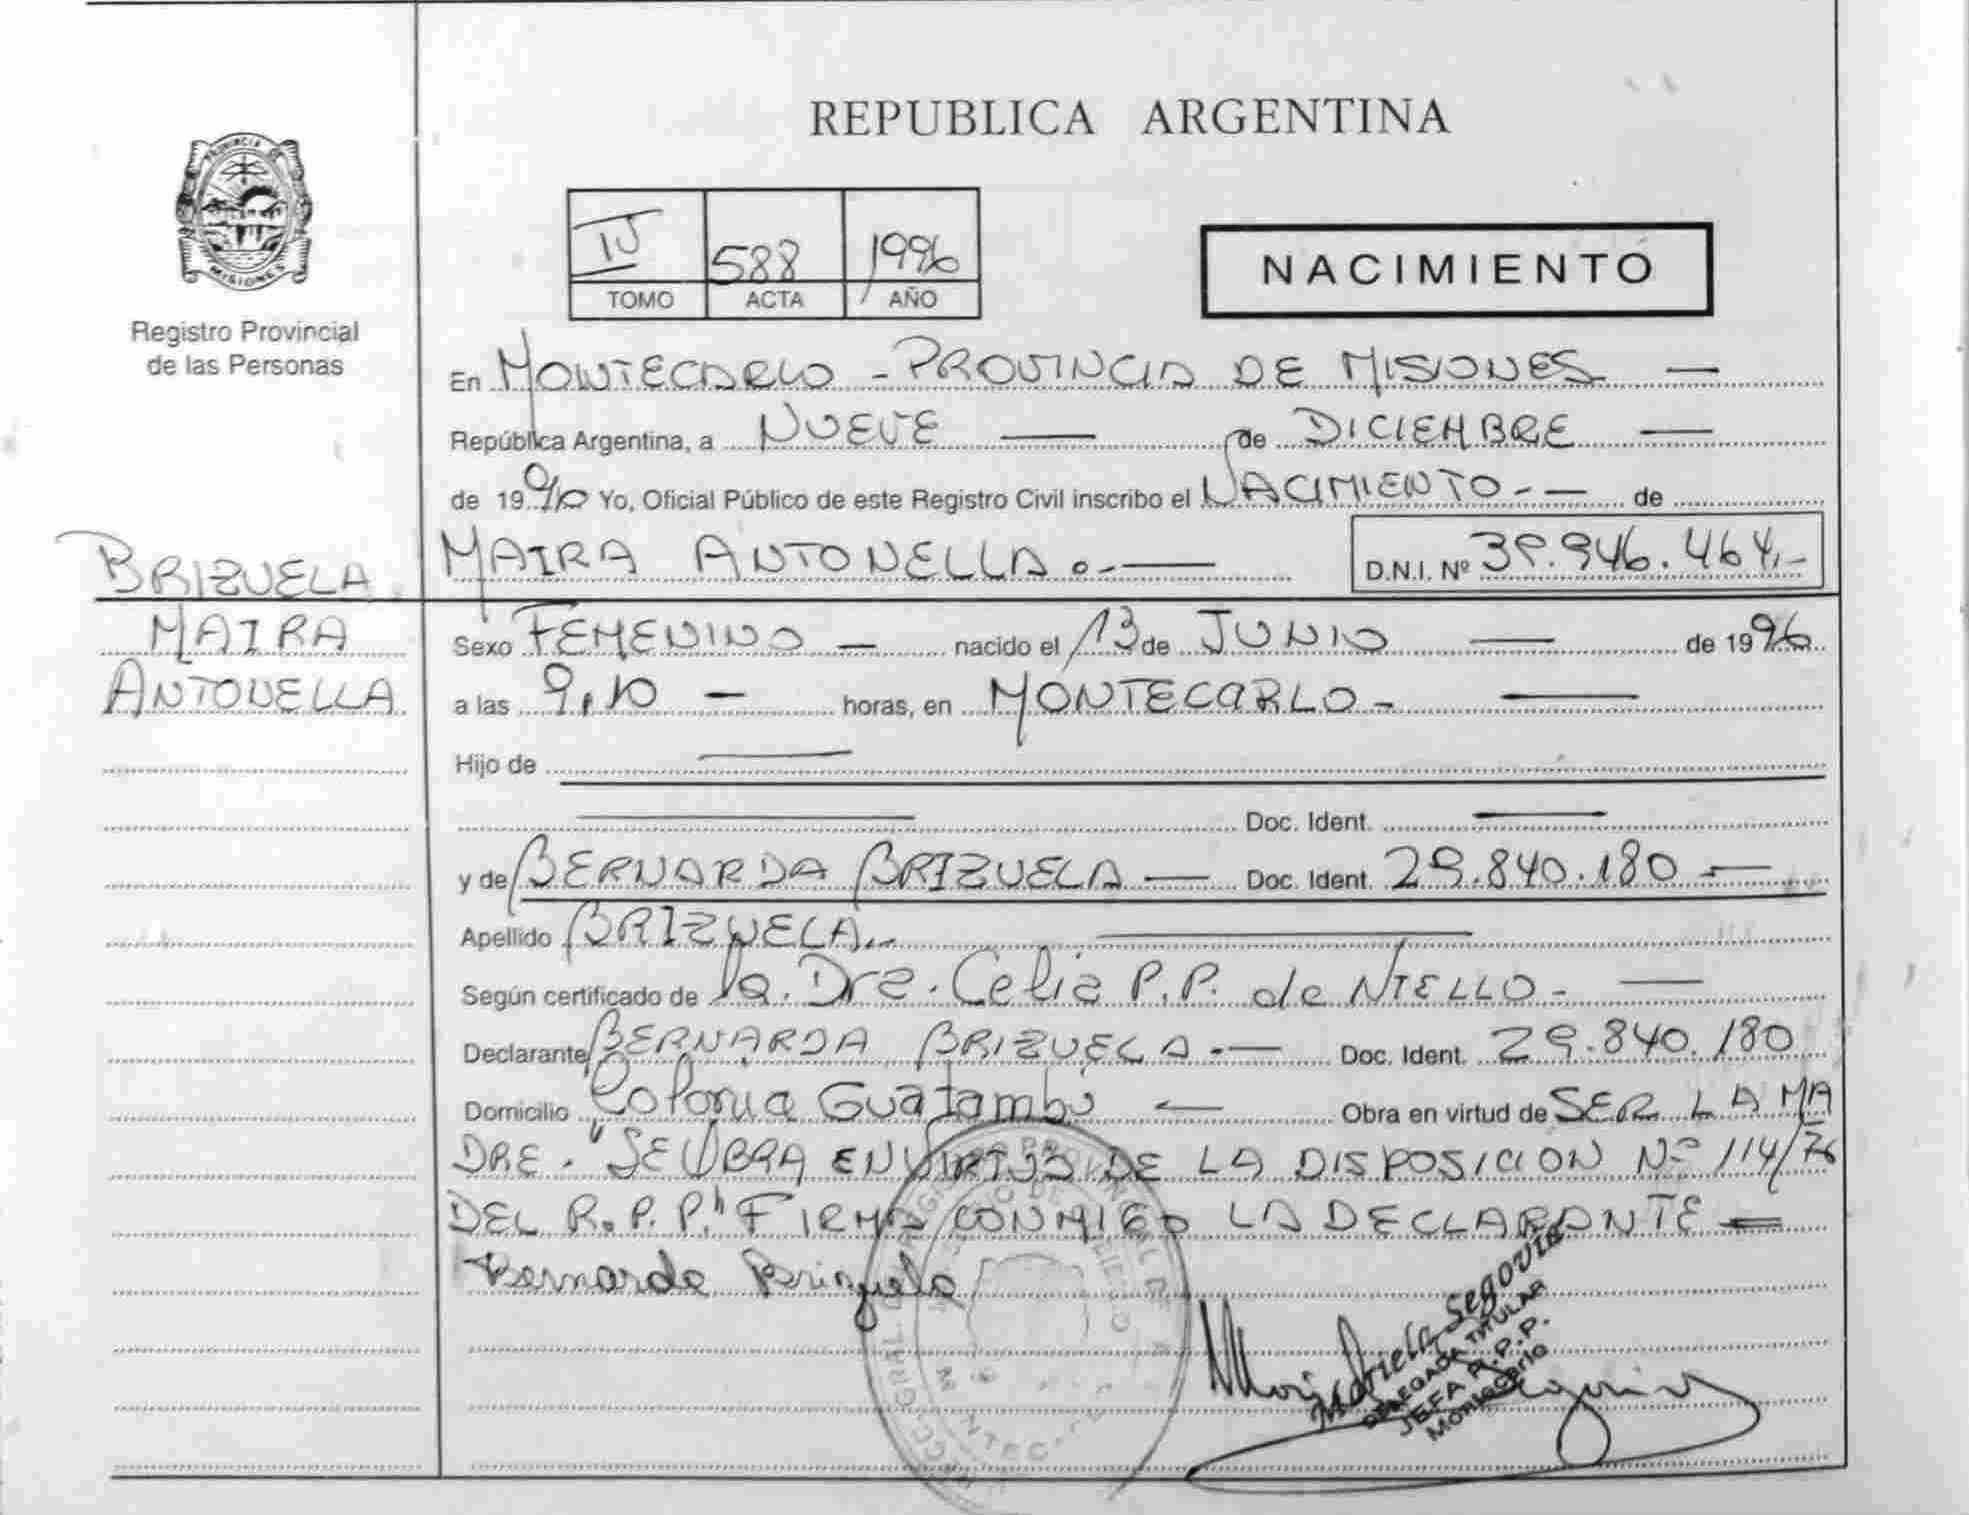 REPUBLICA ARGENTINA
PROVINCIA DE
MISIONES
Registro Provincial
de las Personas
IV 588 1996
TOMO ACTA AÑO
NACIMIENTO
En MONTECARLO - PROVINCIA DE MISIONES —
República Argentina, a NUEVE — de DICIEMBRE —
de 1996 Yo, Oficial Público de este Registro Civil inscribo el NACIMIENTO - — de
BRIZUELA MAIRA ANTONELLA .- — D.N.I. Nº 39.946.464.-
MAIRA
ANTONELLA
Sexo FEMENINO — nacido el 13 de JUNIO — de 1996
a las 9,10 — horas, en MONTECARLO - —
Hijo de —
— Doc. Ident. —
y de BERNARDA BRIZUELA — Doc. Ident. 29.840.180 —
Apellido BRIZUELA.- —
Según certificado de la. Dra. Celia P.P. de NIELLO - —
Declarante BERNARDA BRIZUELA .- — Doc. Ident. 29.840.180
Domicilio Colonia Guatambú — Obra en virtud de SER LA MA
DRE. "SE LABRA EN VIRTUD DE LA DISPOSICION Nº 114/76
DEL R.P.P." FIRMA CONMIGO LA DECLARANTE —
Bernarda Brizuela
Segovia
DELEGADA TITULAR
JEFA R.P.P.
Montecarlo